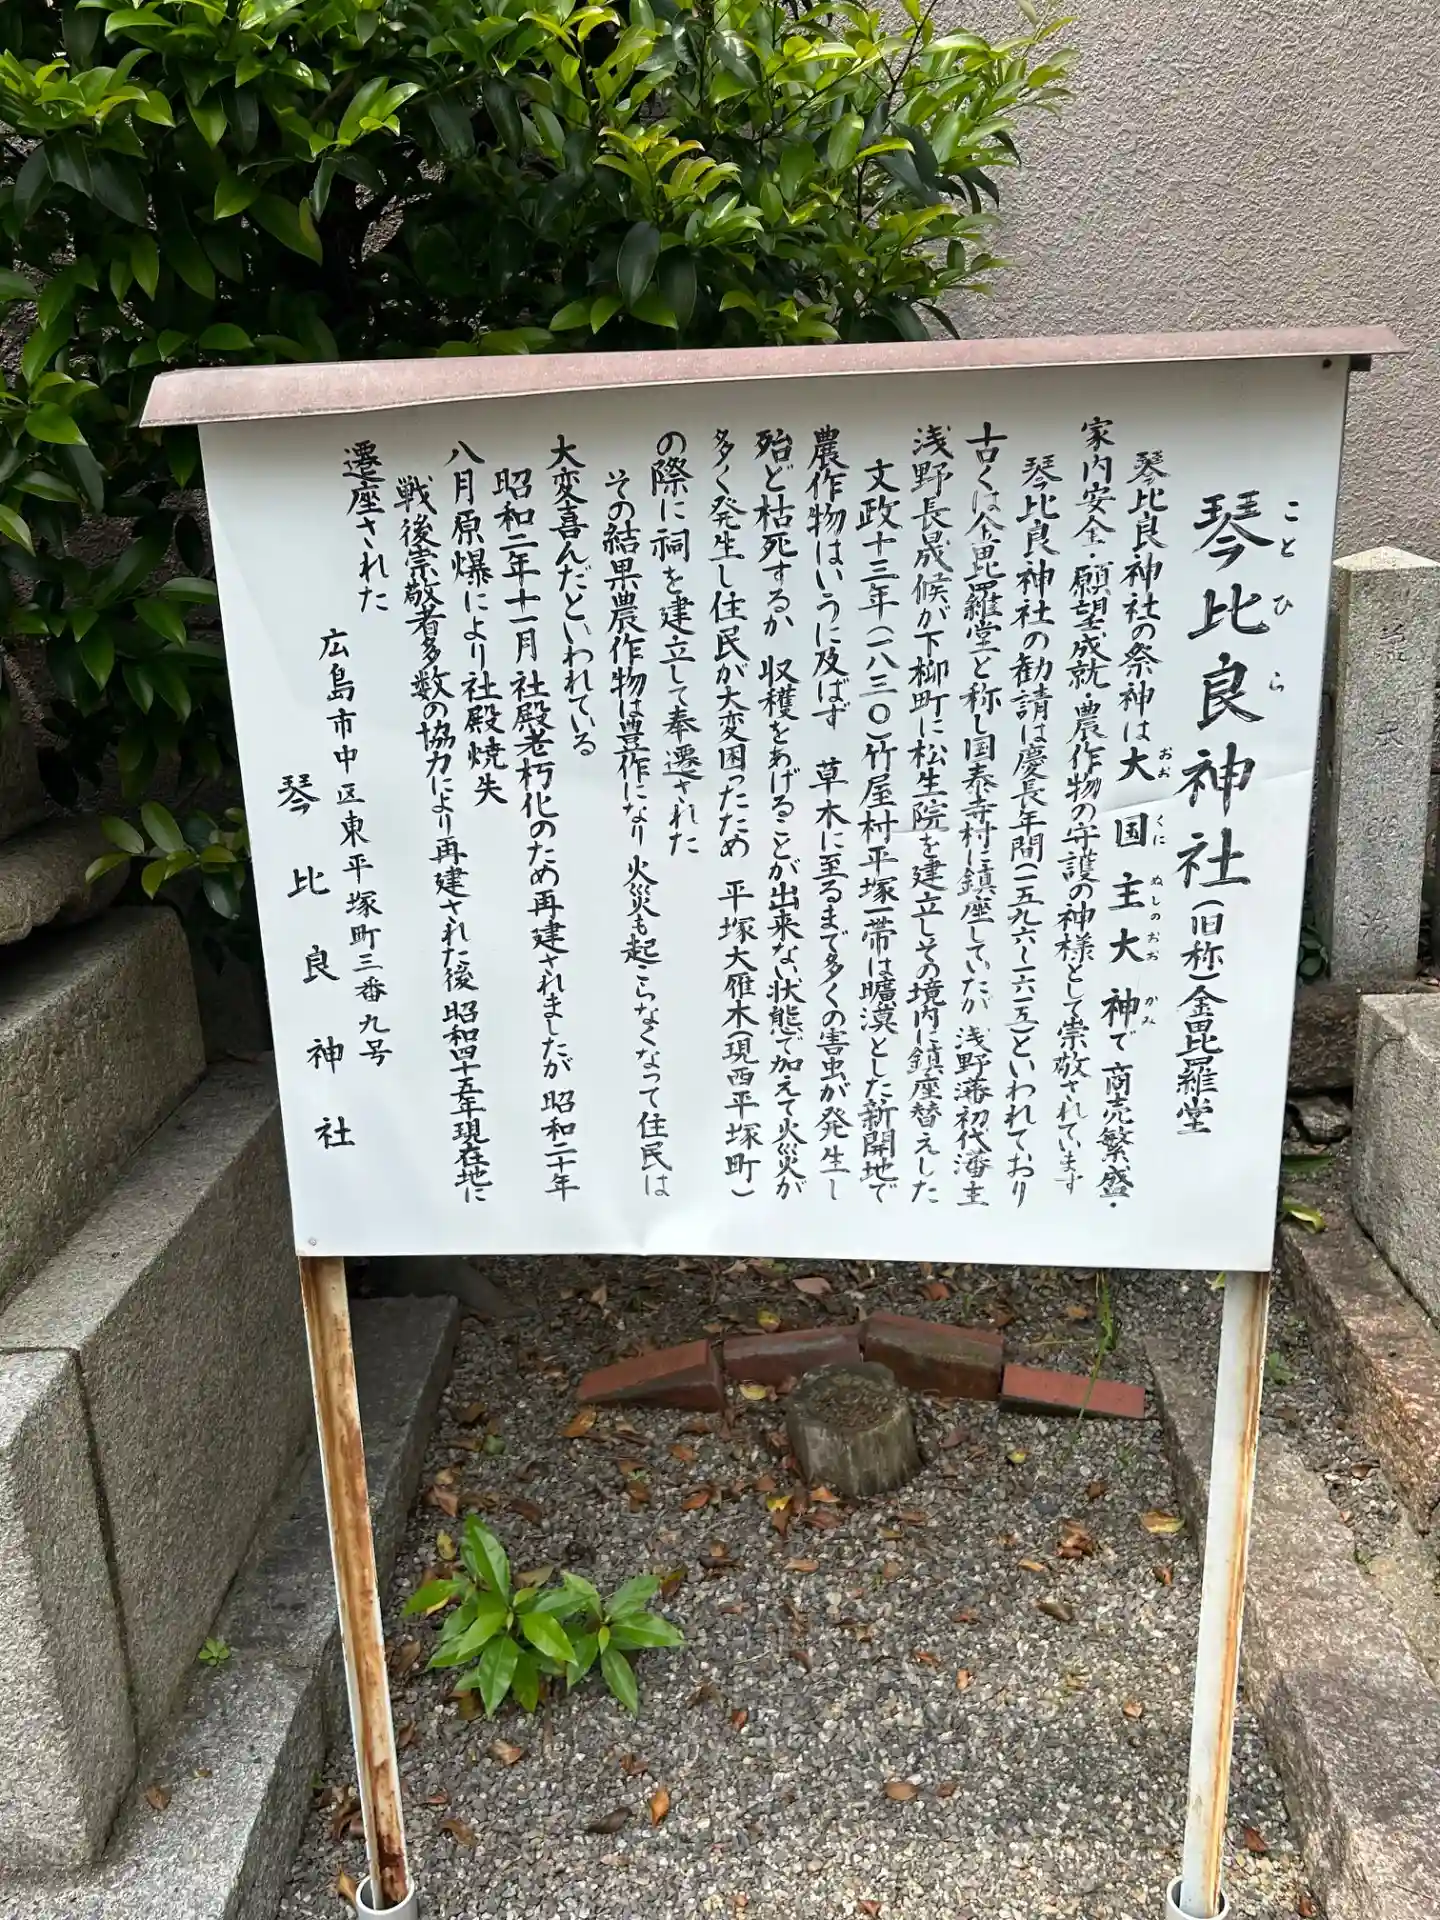 琴比良神社（旧称）金毘羅堂
ことひら
琴比良神社の祭神は大国主大神で商売繁盛・
おおくにぬしのおおかみ
家内安全・願望成就・農作物の守護の神様として崇敬されています
琴比良神社の勧請は慶長年間（一五九六～一六一五）といわれており
古くは金毘羅堂と称し国泰寺村に鎮座していたが 浅野藩初代藩主
浅野長晟候が下柳町に松生院を建立しその境内に鎮座替えした
文政十三年（一八三〇）竹屋村平塚一帯は曠漠とした新開地で
農作物はいうに及ばず 草木に至るまで多くの害虫が発生し
殆ど枯死するか 収穫をあげることが出来ない状態で加えて火災が
多く発生し住民が大変困ったため 平塚大雁木（現西平塚町）
の際に祠を建立して奉遷された
その結果農作物は豊作になり 火災も起こらなくなって住民は
大変喜んだといわれている
昭和二年十一月社殿老朽化のため再建されましたが 昭和二十年
八月原爆により社殿焼失
戦後崇敬者多数の協力により再建された後 昭和四十五年現在地に
遷座された
広島市中区東平塚町三番九号
琴比良神社